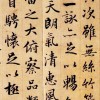 次雖無絲竹
一詠亦足以暢
天朗氣清惠風
之大俯察品類
目騁懷足以極